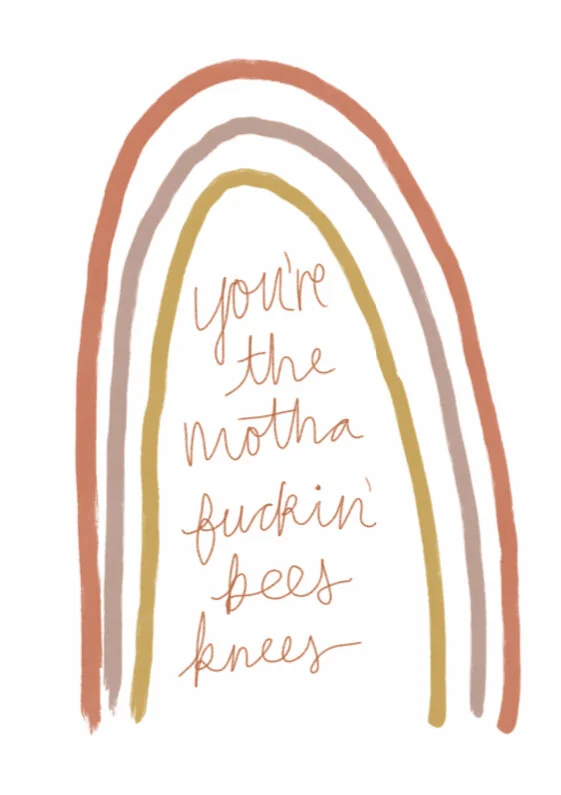 you're
the
motha
fuckin'
bees
knees